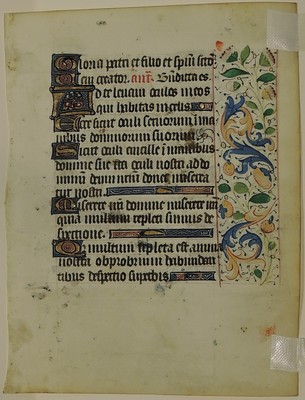 Gloria patri et filio et spiui scto
eni creator. ant. Bndicta es
d te levaui oculos meos
qui habitas in celis
Ecce sicut oculi seruorum i ma
nibus dominorum suorum
Sicut oculi ancille i manibus
domine sue ita oculi nostri ad do
minum deum nrm donec miserea
tur nostri
Miserere nri domine miserere nri
quia multum repleti sumus de
spectione
Quia multum repleta est anima
nostra obprobrium habundan
tibus et despectio superbis